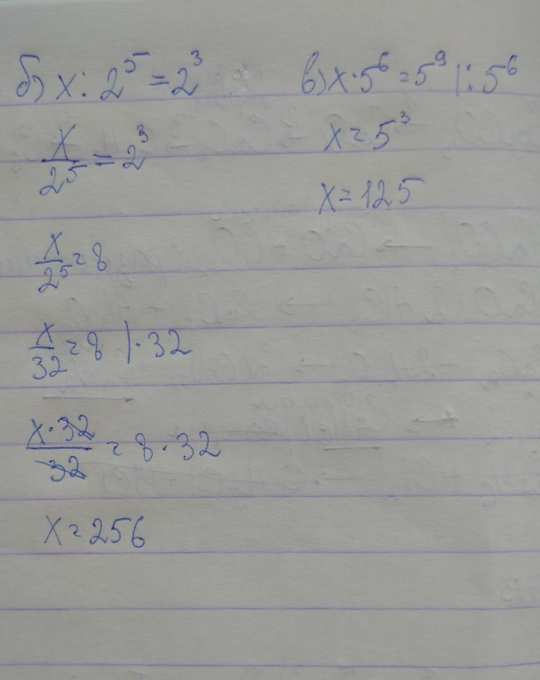 б) x : 2⁵ = 2³
x/2⁵ = 2³
x/2⁵ = 8
x/32 = 8 | · 32
x · 32/32 = 8 · 32
x = 256
в) x · 5⁶ = 5⁹ | : 5⁶
x = 5³
x = 125